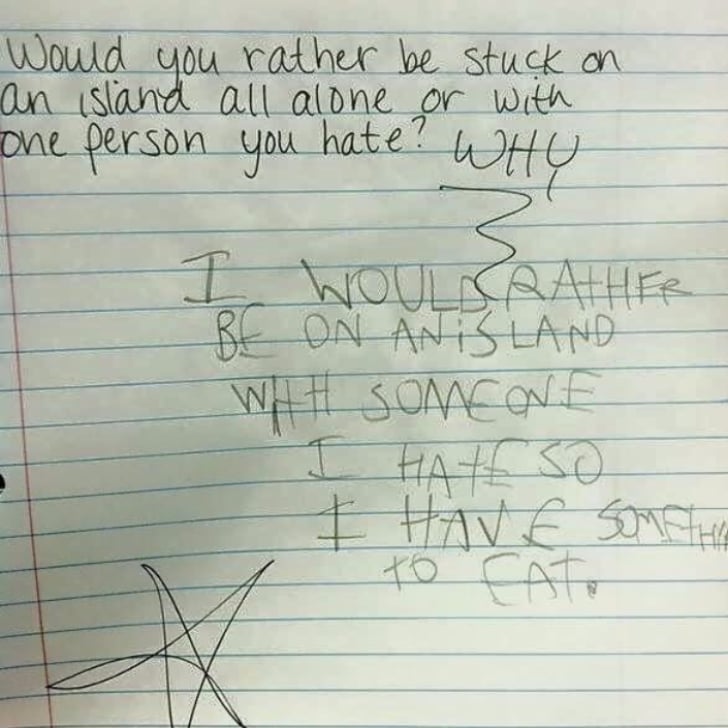 Would you rather be stuck on
an island all alone or with
one person you hate? WHY
I WOULD RATHER
BE ON AN iSLAND
WitH SOMEONE
I HAtE SO
I HAVE SOMEtHI
tO EAT.